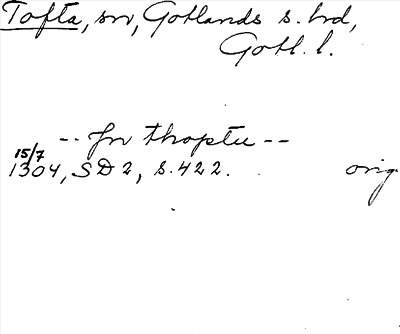 Tofta, sn, Gotlands s. hd,
Gotl. l.
-- Jn thoptu --
15/7
1304, SD 2, s. 422. orig.